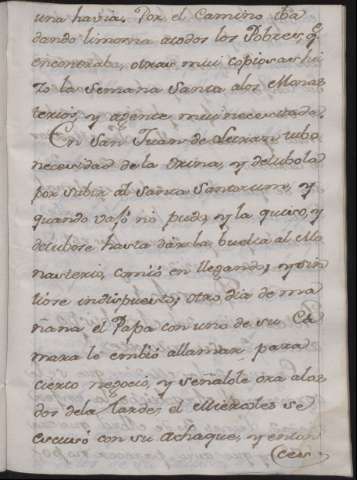 una havia. Por el Camino iba
dando limosna a todos los Pobres, q
encontraba, otras mui copiosas hi
zo la Semana Santa alos Monas
terios, y a gente mui necesitada.
En San Juan de Letran tubo
necesidad de la orina, y detubola
por subir al Sancta Sanctorum, y
quando vajó no pudo, y la quiso, y
detubose hasta dar la buelta al Mo
nasterio, comió en llegando, y sin
tiose indispuesto; otro dia de ma
ñana el Papa con uno de su Ca
mara le embió allamar para
cierto negocio, y señalole ora alas
dos dela tarde; el Miercoles se
escusó con su achaque, y enton
ces